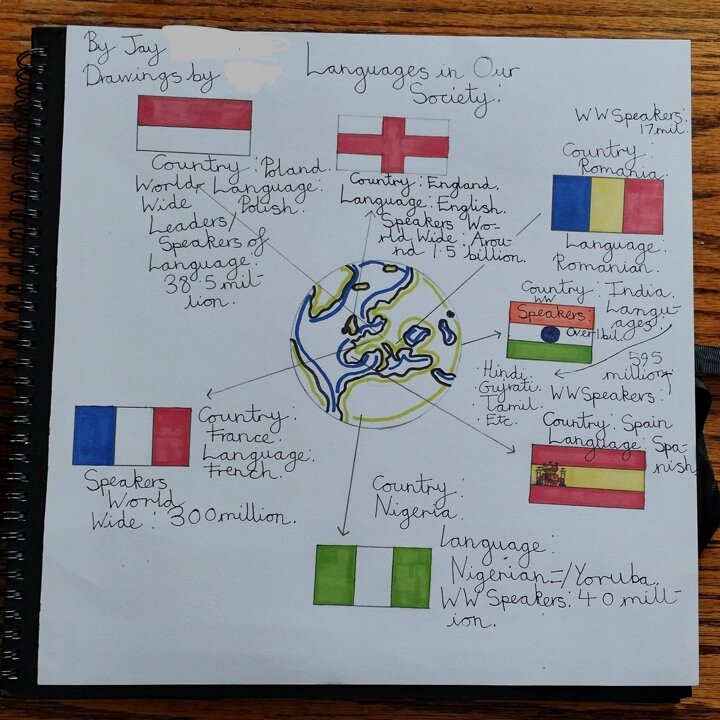 By Jay
Drawings by
Languages in Our
Society:
Country: Poland.
World Language:
Wide Polish.
Leaders/
Speakers of
Language:
38.5 mil-
lion.
Country: England.
Language: English.
Speakers Wo-
rld Wide: Arou-
nd 1.5 billion.
WWSpeakers:
17 mil.
Country:
Romania.
Language:
Romanian.
Country: India.
Langu-
ages:
WW
Speakers:
Over 1 bil.
Hindi.
Gujrati.
Tamil.
Etc.
595
million
WWSpeakers:
Country: Spain
Language: Spa-
nish
Country:
France.
Language:
French.
Speakers
World
Wide: 300 million.
Country:
Nigeria.
Language:
Nigerian=/Yoruba.
WW Speakers: 40 mill-
ion.